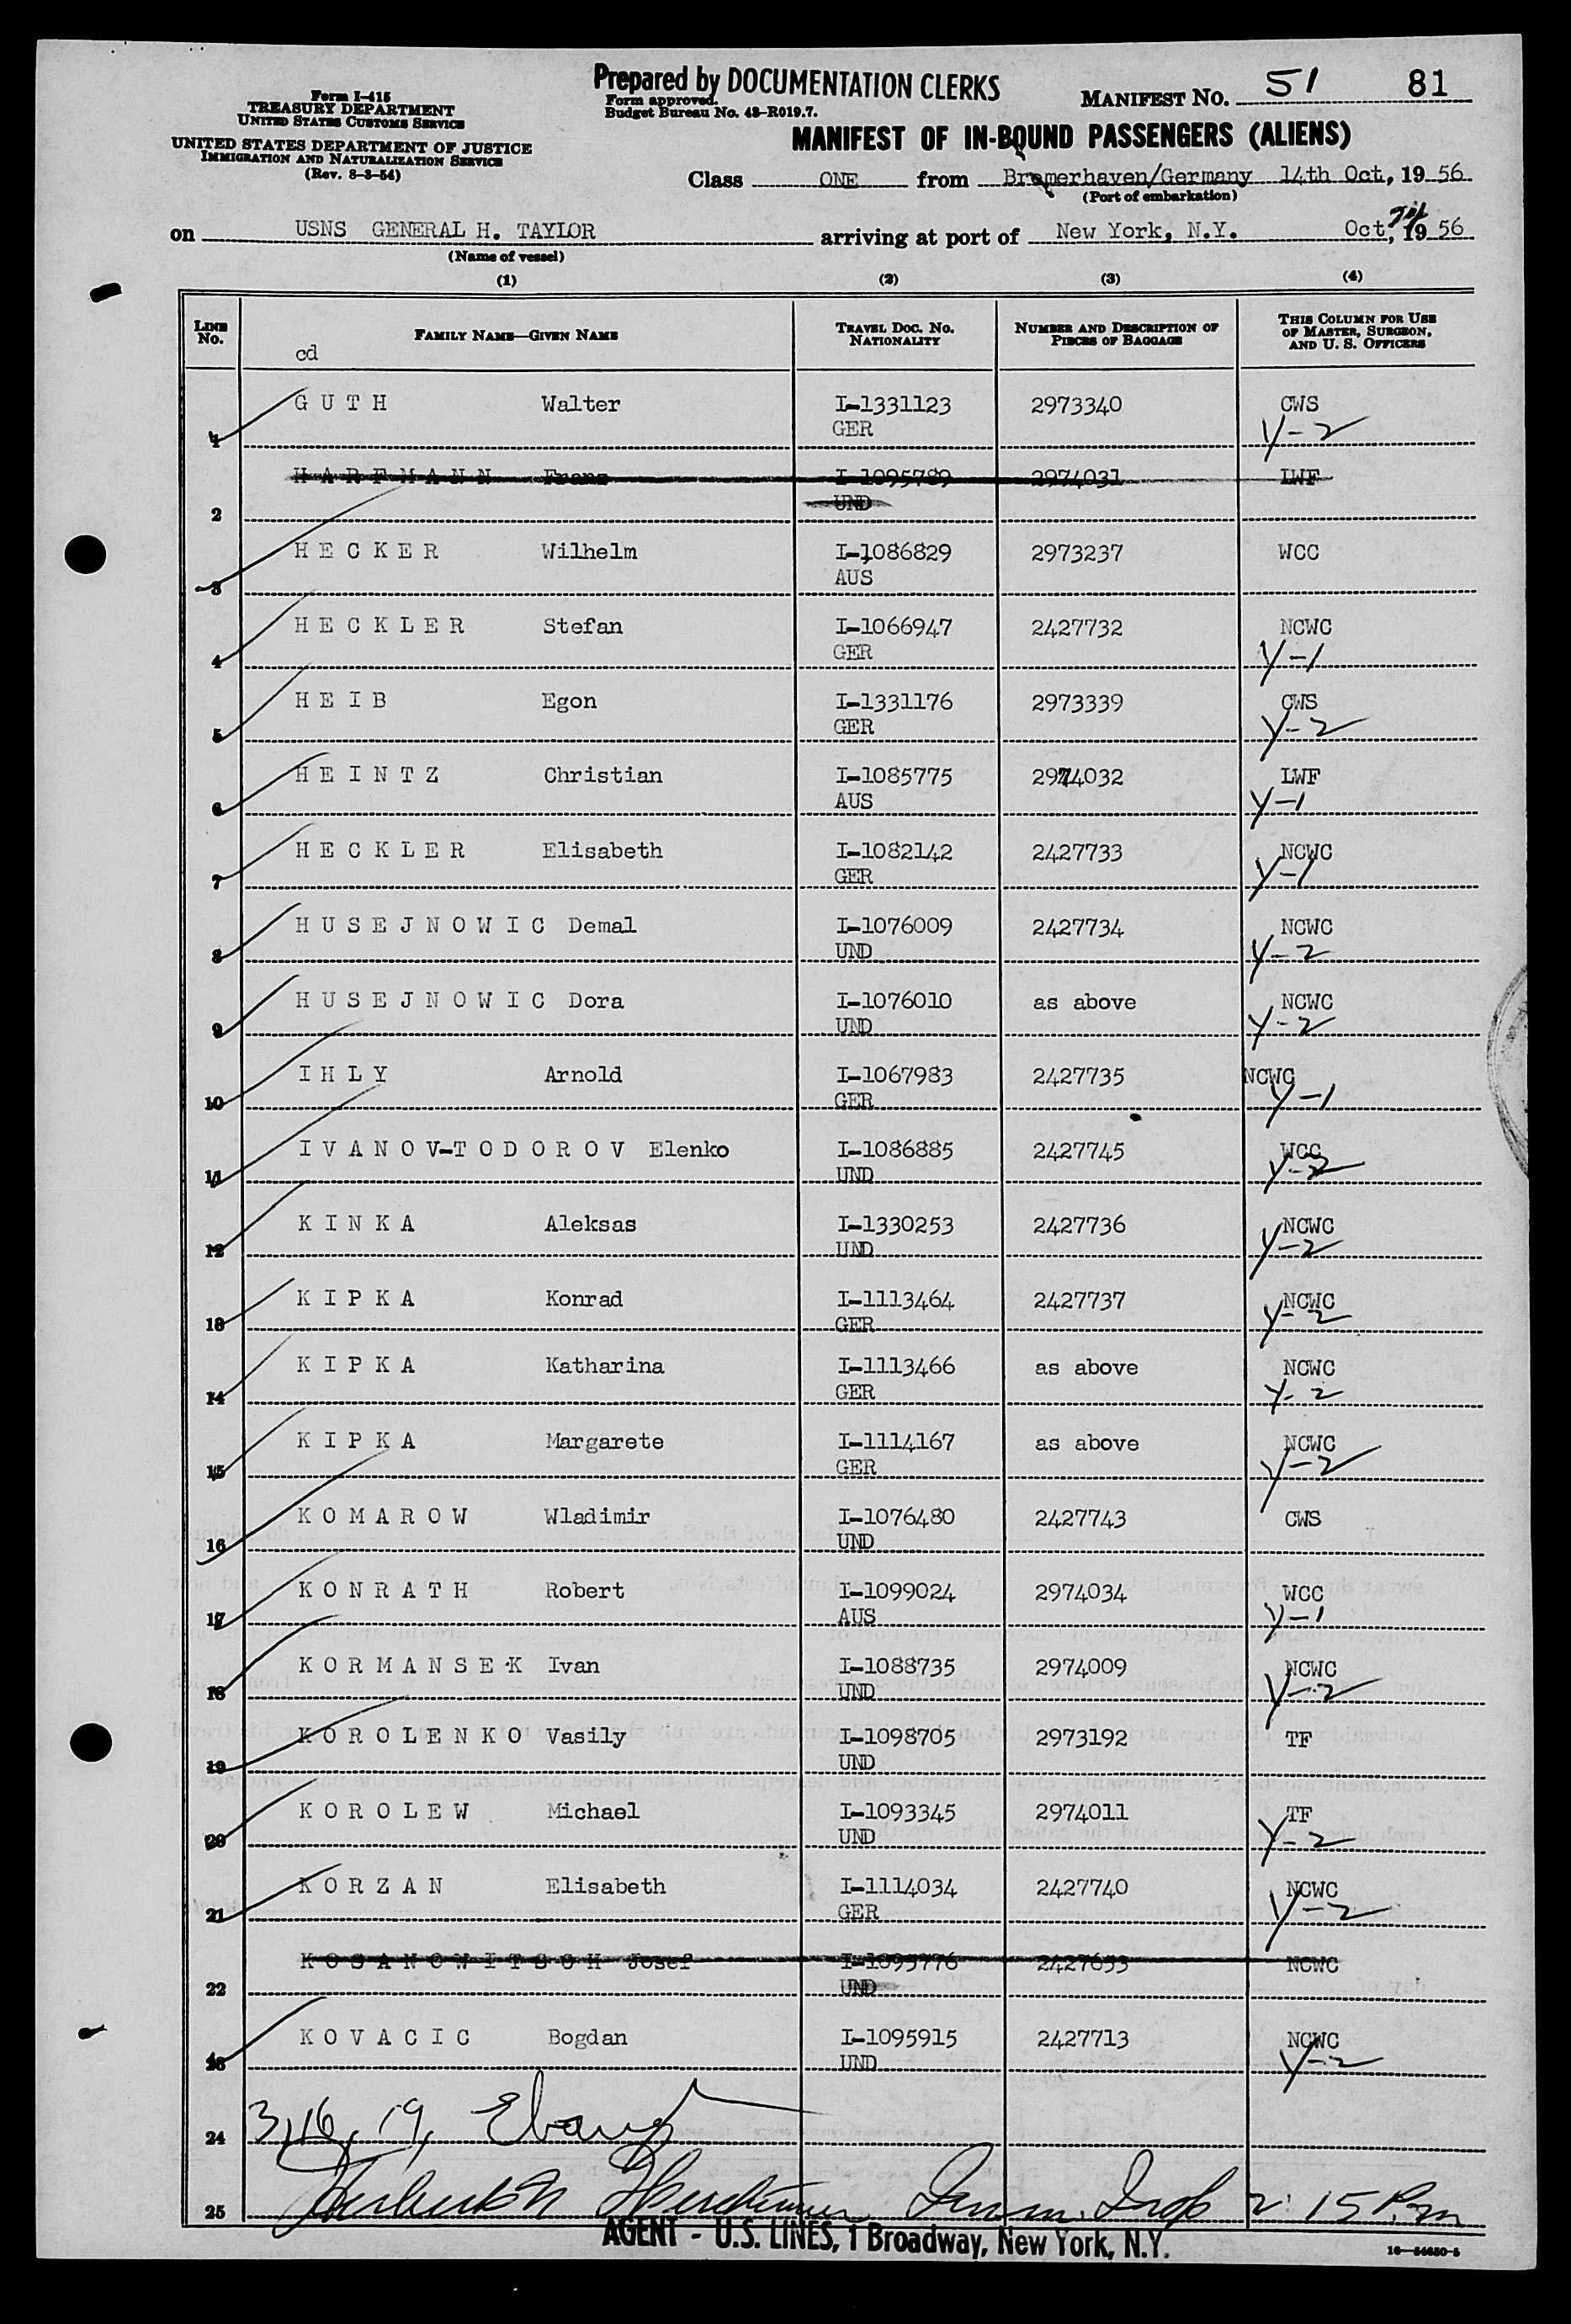 Prepared by DOCUMENTATION CLERKS
Form I-415
TREASURY DEPARTMENT
UNITED STATES CUSTOMS SERVICE
UNITED STATES DEPARTMENT OF JUSTICE
IMMIGRATION AND NATURALIZATION SERVICE
(Rev. 8-3-54)
Form approved.
Budget Bureau No. 43-R019.7.
MANIFEST NO. 51 81
MANIFEST OF IN-BOUND PASSENGERS (ALIENS)
Class ONE from Bremerhaven/Germany 14th Oct, 19 56
(Port of embarkation)
on USNS GENERAL H. TAYLOR arriving at port of New York, N.Y. Oct, 24 19 56
(Name of vessel)
(1) (2) (3) (4)
LINE No. FAMILY NAME—GIVEN NAME TRAVEL DOC. NO. NATIONALITY NUMBER AND DESCRIPTION OF PIECES OF BAGGAGE THIS COLUMN FOR USE OF MASTER, SURGEON, AND U. S. OFFICERS
cd
G U T H Walter I-1331123 2973340 CWS
1 GER Y-2
H A R F M A N N Franz I-1095789 2974031 LWF
2 UND
H E C K E R Wilhelm I-1086829 2973237 WCC
3 AUS
H E C K L E R Stefan I-1066947 2427732 NCWC
4 GER Y-1
H E I B Egon I-1331176 2973339 CWS
5 GER Y-2
H E I N T Z Christian I-1085775 2974032 LWF
6 AUS Y-1
H E C K L E R Elisabeth I-1082142 2427733 NCWC
7 GER Y-1
H U S E J N O W I C Demal I-1076009 2427734 NCWC
8 UND Y-2
H U S E J N O W I C Dora I-1076010 as above NCWC
9 UND Y-2
I H L Y Arnold I-1067983 2427735 NCWC
10 GER Y-1
I V A N O V-T O D O R O V Elenko I-1086885 2427745 WCC
11 UND Y-2
K I N K A Aleksas I-1330253 2427736 NCWC
12 UND Y-2
K I P K A Konrad I-1113464 2427737 NCWC
13 GER Y-2
K I P K A Katharina I-1113466 as above NCWC
14 GER Y-2
K I P K A Margarete I-1114167 as above NCWC
15 GER Y-2
K O M A R O W Wladimir I-1076480 2427743 CWS
16 UND
K O N R A T H Robert I-1099024 2974034 WCC
17 AUS Y-1
K O R M A N S E K Ivan I-1088735 2974009 NCWC
18 UND Y-2
K O R O L E N K O Vasily I-1098705 2973192 TF
19 UND
K O R O L E W Michael I-1093345 2974011 TF
20 UND Y-2
K O R Z A N Elisabeth I-1114034 2427740 NCWC
21 GER Y-2
K O S A N O W I T S C H Josef I-1095776 2427653 NCWC
22 UND
K O V A C I C Bogdan I-1095915 2427713 NCWC
23 UND Y-2
24 3, 16, 19,
25 Imm. Insp 2:15 P.m
AGENT - U.S. LINES, 1 Broadway, New York, N.Y.
16—54650-5